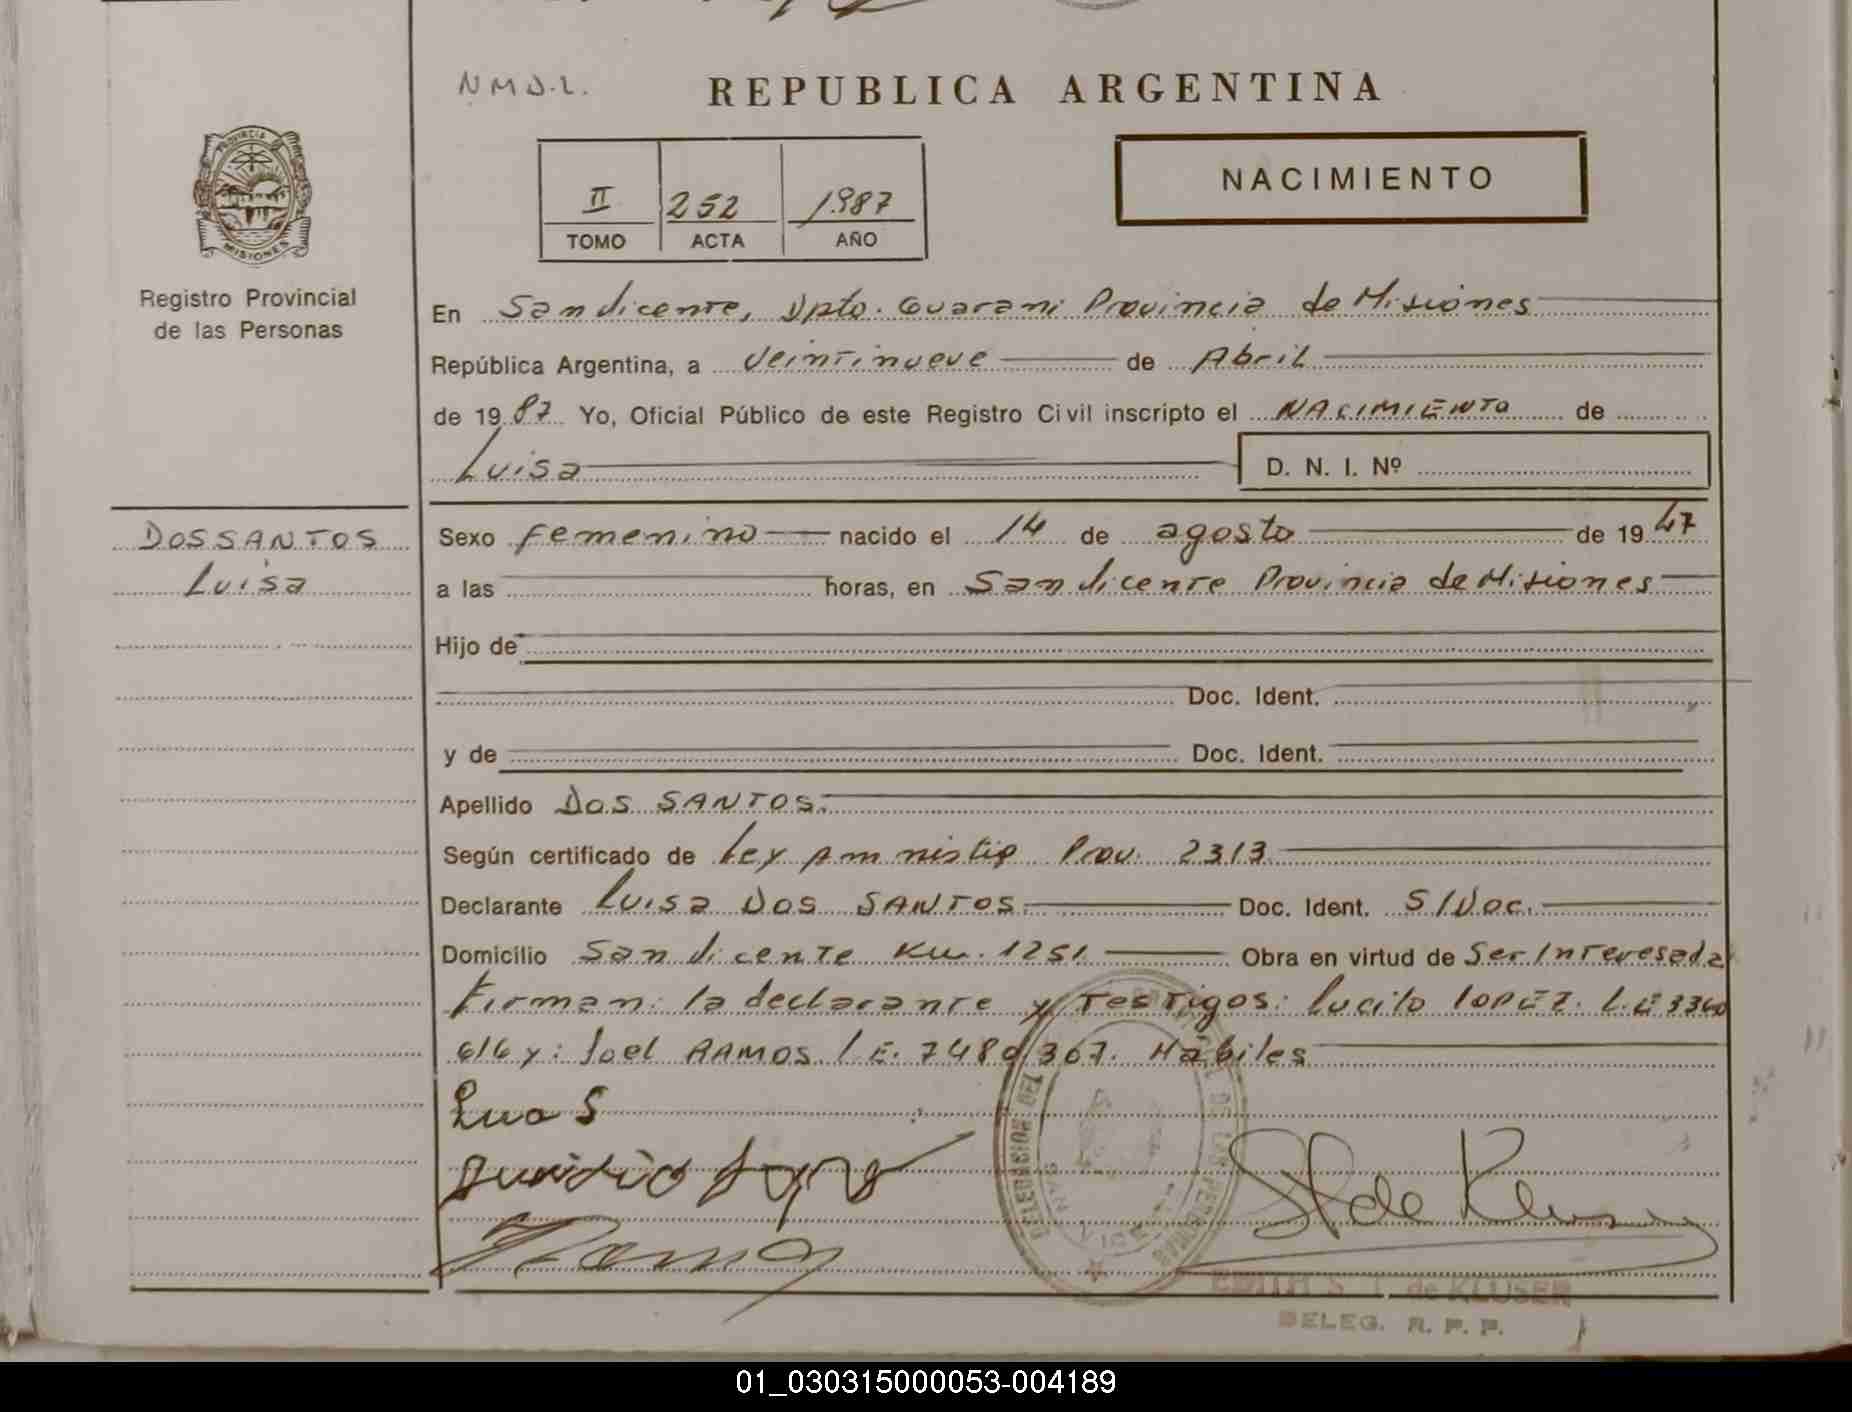 N M D. L.
REPUBLICA ARGENTINA
PROVINCIA
MISIONES
NACIMIENTO
II 252 1987
TOMO ACTA AÑO
Registro Provincial
de las Personas
En San Vicente, Dpto. Guarani Provincia de Misiones
República Argentina, a Veintinueve de Abril
de 1987 Yo, Oficial Público de este Registro Civil inscripto el NACIMIENTO de
Luisa D. N. I. Nº
DOSSANTOS
Luisa
Sexo femenino nacido el 14 de agosto de 1947
a las horas, en San Vicente Provincia de Misiones
Hijo de
Doc. Ident.
y de Doc. Ident.
Apellido Dos SANTOS.
Según certificado de Ley Amnistia Prov. 2313
Declarante Luisa Dos SANTOS. Doc. Ident. S/Doc.
Domicilio San Vicente Km. 1251 Obra en virtud de Ser Interesada
Firman: la declarante y Testigos: Lucito LOPEZ. L.E 3360
616 y: Joel RAMOS. L.E. 7480367. Hábiles
DELEGACION DEL DE LAS PERSONAS
SAN VICENTE
de Kluser
EDITH S. de KLUSER
DELEG. R. P. P.
01_030315000053-004189